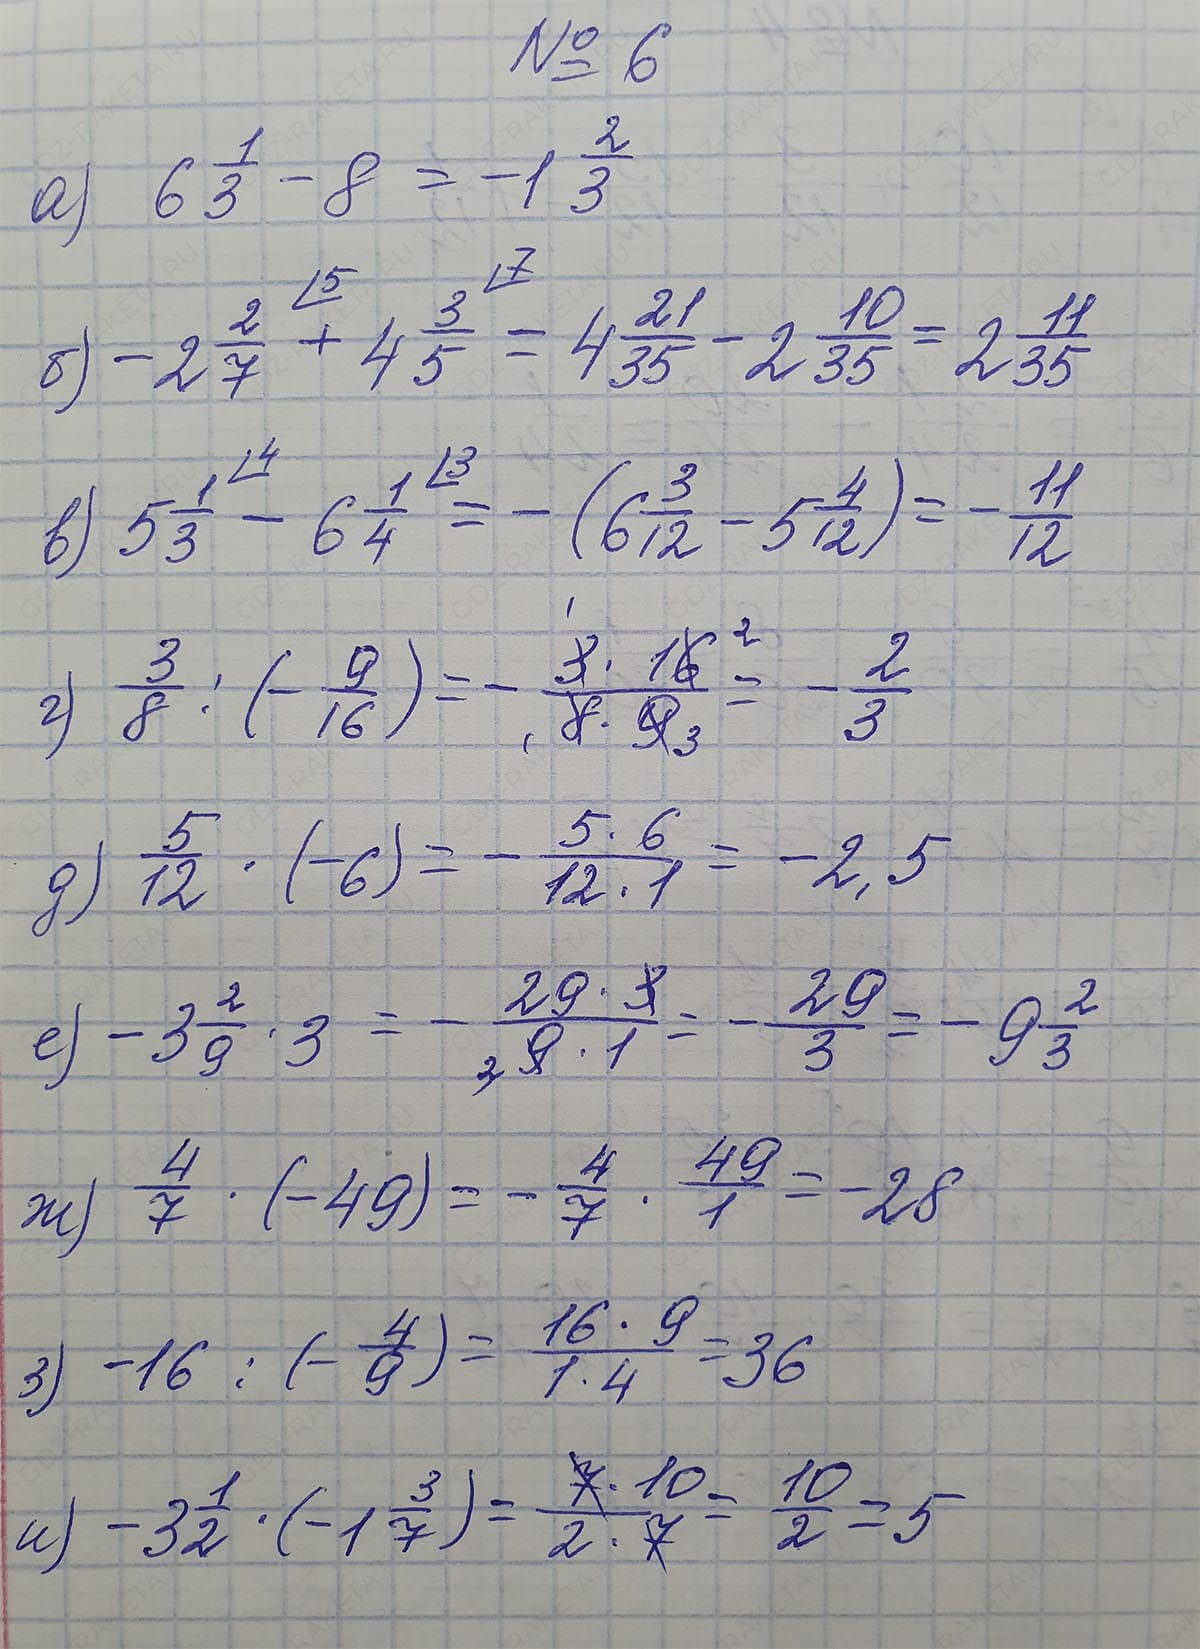 № 6
а) 6 1/3 - 8 = -1 2/3
б) -2 2/7 ⌊5 + 4 3/5 ⌊7 = 4 21/35 - 2 10/35 = 2 11/35
в) 5 1/3 ⌊4 - 6 1/4 ⌊3 = -(6 3/12 - 5 4/12) = - 11/12
г) 3/8 : (- 9/16) = - 3 · 16 / 8 · 9 = - 2/3
д) 5/12 · (-6) = - 5 · 6 / 12 · 1 = -2,5
е) -3 2/9 · 3 = - 29 · 3 / 9 · 1 = - 29/3 = -9 2/3
ж) 4/7 · (-49) = - 4/7 · 49/1 = -28
з) -16 : (- 4/9) = 16 · 9 / 1 · 4 = 36
и) -3 1/2 · (-1 3/7) = 7 · 10 / 2 · 7 = 10/2 = 5